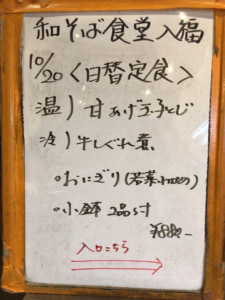 和そば食堂入福
10/20〈日替定食〉
温）甘あげ玉子とじ
冷）牛しぐれ煮
○おにぎり（若菜わかめ）
○小鉢2品付
¥880-
入口こちら